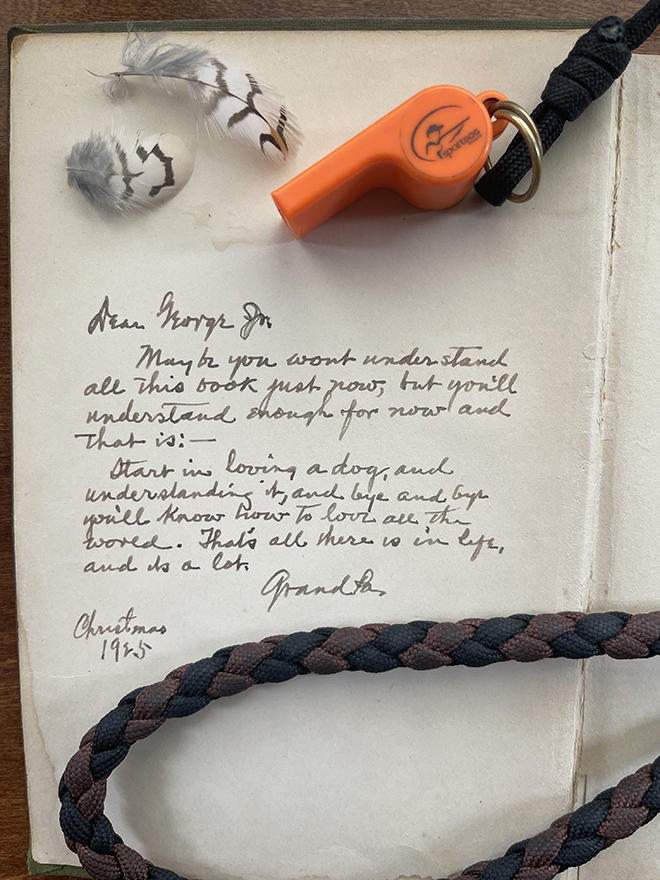 Sportdog
Dear George Jr.
Maybe you wont understand
all this book just now, but you'll
understand enough for now and
that is:—
Start in loving a dog, and
understanding it, and bye and bye
you'll know how to love all the
world. That's all there is in life,
and its a lot.
GrandPa
Christmas
1925